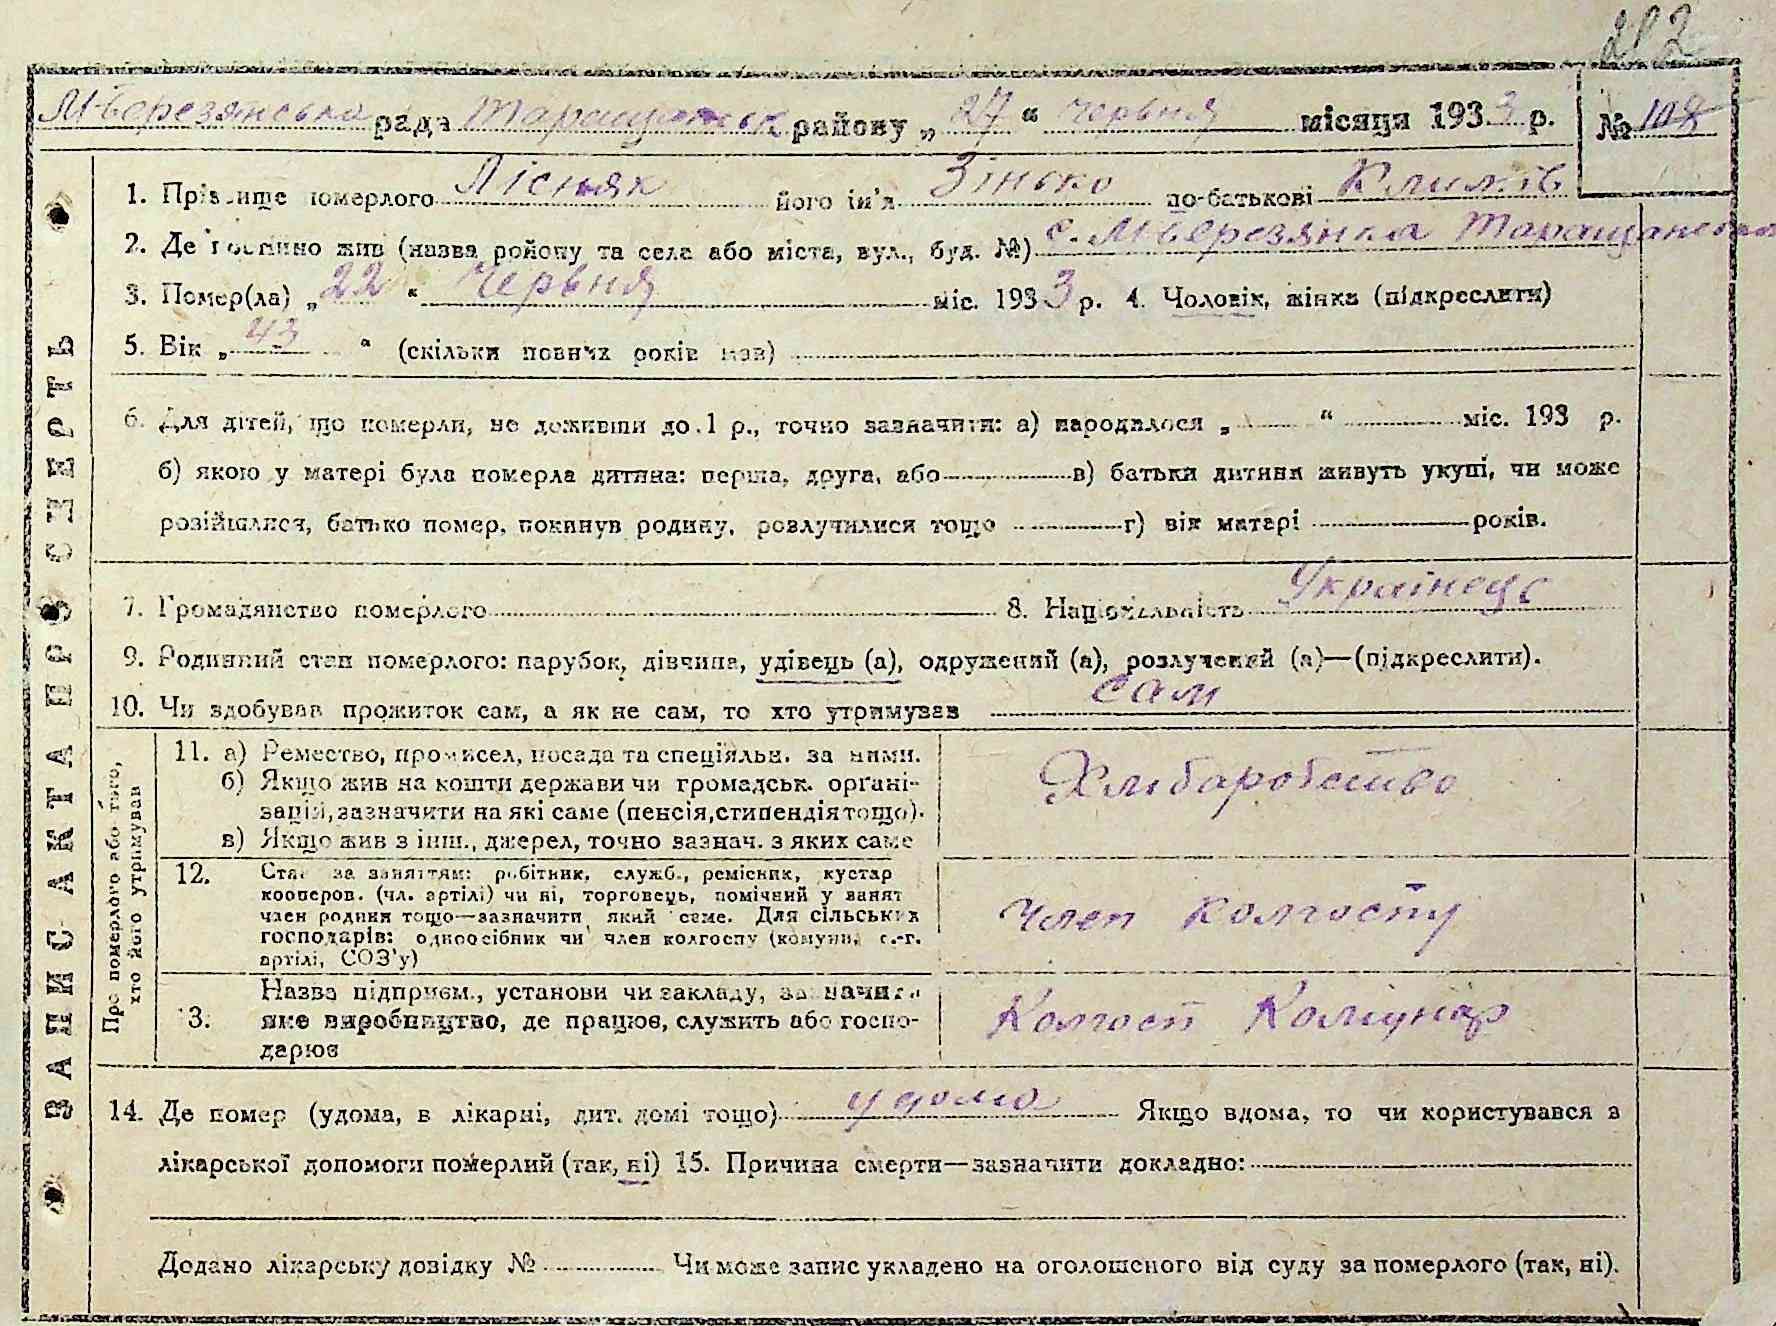 212
М-Березянська рада Таращанськ району „27“ червня місяця 1933 р. № 108
1. Прізвище померлого Лісняк його ім'я Зінько по-батькові Климів
2. Де постійно жив (назва району та села або міста, вул., буд. №) с. М-Березянка Таращанськ
3. Помер(ла) „22“ Червня міс. 1933 р. 4. Чоловік, жінка (підкреслити)
5. Вік „43“ (скільки повних років мав)
6. Для дітей, що померли, не доживши до 1 р., точно зазначити: а) народилося „ “ міс. 193 р.
б) якою у матері була померла дитина: перша, друга, або в) батьки дитини живуть укупі, чи може
розійшлися, батько помер, покинув родину, розлучилися тощо г) вік матері років.
7. Громадянство померлого 8. Національність Українець
9. Родинний стан померлого: парубок, дівчина, удівець (а), одружений (а), розлучений (а)—(підкреслити).
10. Чи здобував прожиток сам, а як не сам, то хто утримував сам
ЗАПИС АКТА ПРО СМЕРТЬ
Про померлого або того, хто його утримував
11. а) Ремество, промисел, посада та спеціяльн. за ними.
б) Якщо жив на кошти держави чи громадськ. орґані-
зацій, зазначити на які саме (пенсія, стипендія тощо).
в) Якщо жив з інш., джерел, точно зазнач. з яких саме
Хлібаробство
12. Стан за заняттям: робітник, служб., ремісник, кустар
кооперов. (чл. артілі) чи ні, торговець, помічний у занят
член родини тощо—зазначити який саме. Для сільських
господарів: одноосібник чи член колгоспу (комуни, с.-г.
артілі, СОЗ'у)
Член колгоспу
13. Назва підприєм., установи чи закладу, зазначити
яке виробництво, де працює, служить або госпо-
дарює
Колгосп Комунар
14. Де помер (удома, в лікарні, дит. домі тощо) удома Якщо вдома, то чи користувався з
лікарської допомоги померлий (так, ні) 15. Причина смерти—зазначити докладно:
Додано лікарську довідку № Чи може запис укладено на оголошеного від суду за померлого (так, ні).